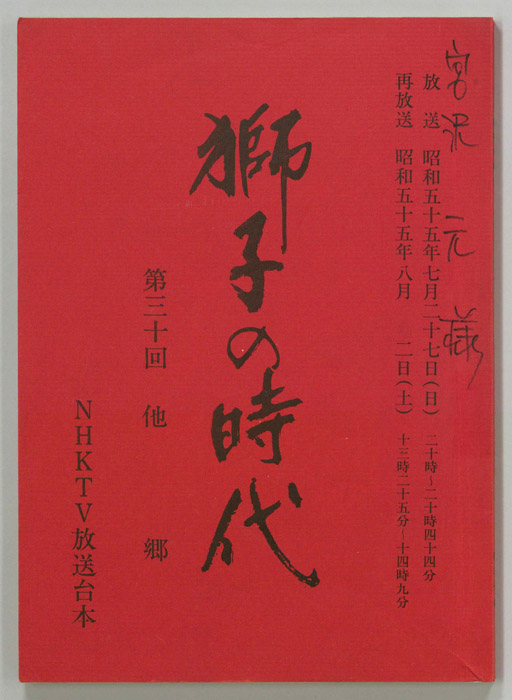 宮沢 元 様
放 送 昭和五十五年七月二十七日(日) 二十時~二十時四十四分
再放送 昭和五十五年八月 二日(土) 十三時二十五分~十四時九分
獅子の時代
第三十回 他 郷
NHKTV放送台本